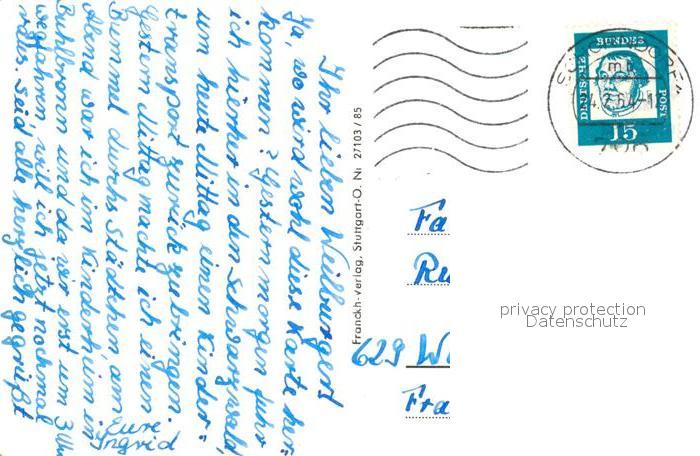 Ihr lieben Weilburger!
Ja, wo wird wohl diese Karte her=
kommen? Gestern morgen fuhr
ich hierher in den Schwarzwald
um heute Mittag einen Kinder=
transport zurück zu bringen.
Gestern Mittag machte ich einen
Bummel durchs Städtchen, am
Abend war ich im Kinderheim in
Bühlbronn und da wir erst um 3 Uhr
wegfahren, will ich jetzt nochmal
raus. Seid alle herzlich gegrüßt
Eure
Ingrid
Franckh-Verlag, Stuttgart-O. Nr. 27103/85
DEUTSCHE
BUNDES
POST
15
Fa
Ru
629 W
Fra
privacy protection
Datenschutz